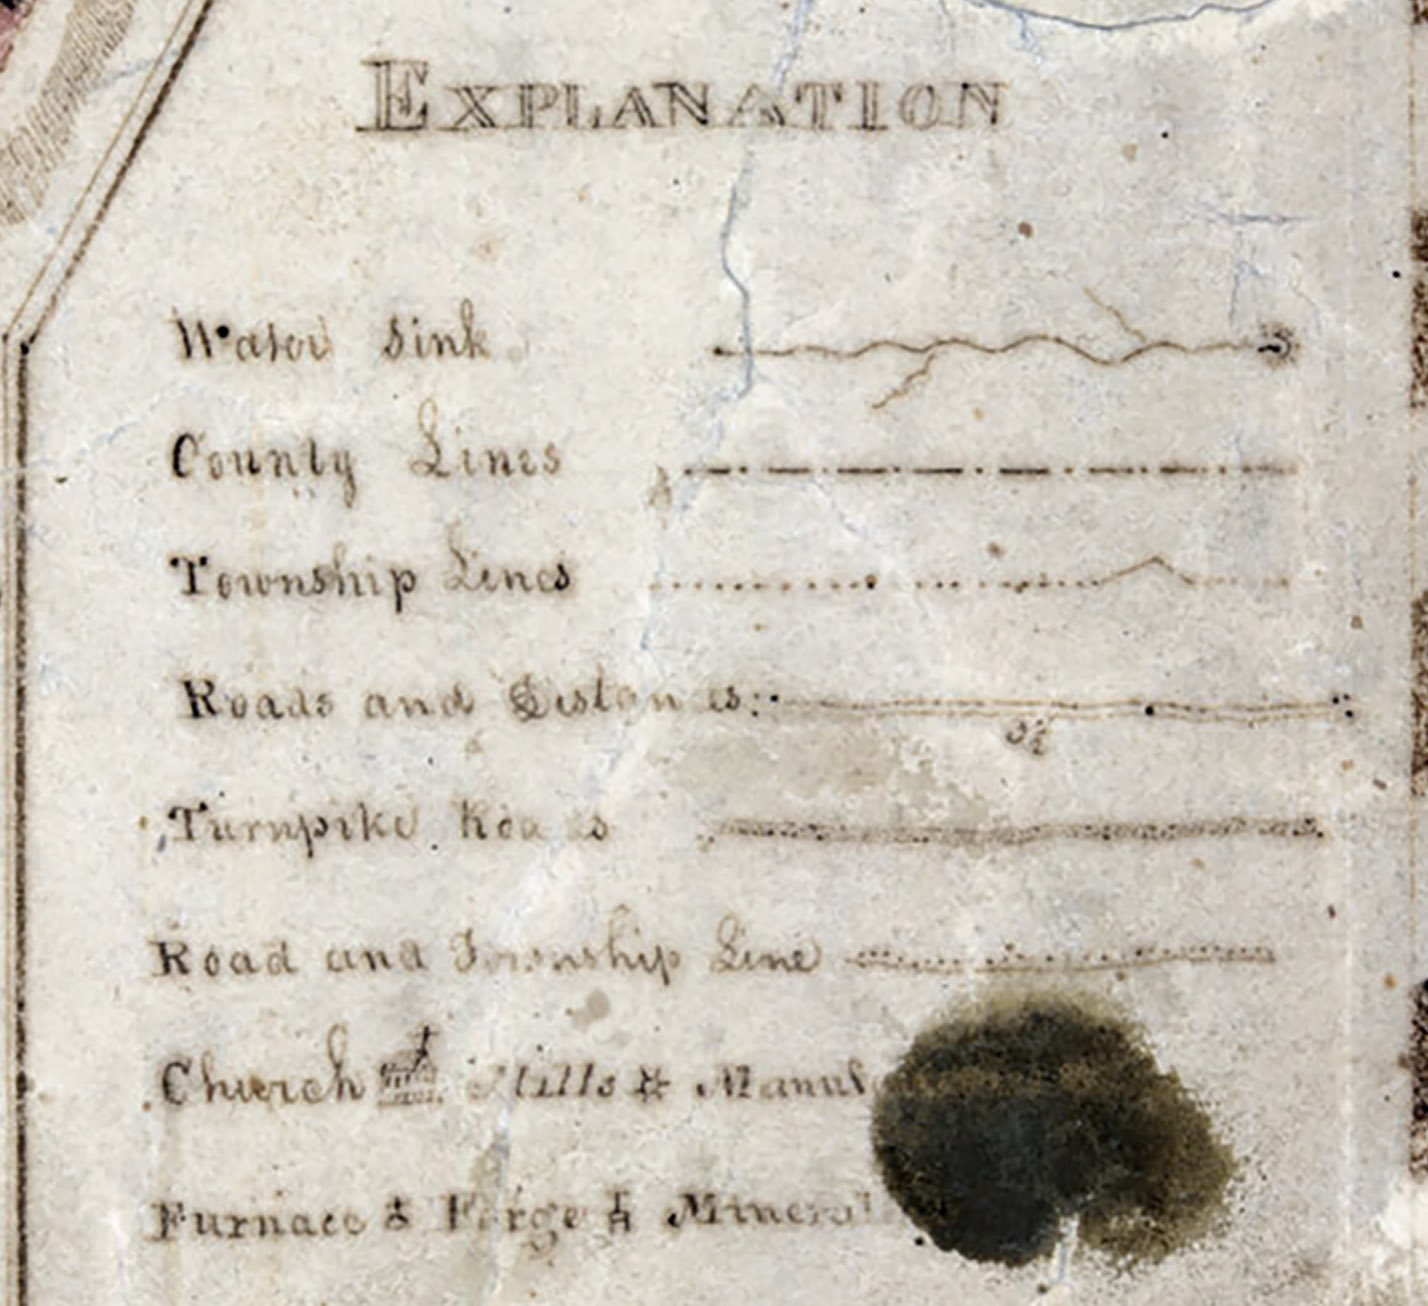 EXPLANATION
Water Sink
County Lines
Township Lines
Roads and Distances
Turnpike Roads
Road and Township Line
Church Mills
Furnace Forge Mineral